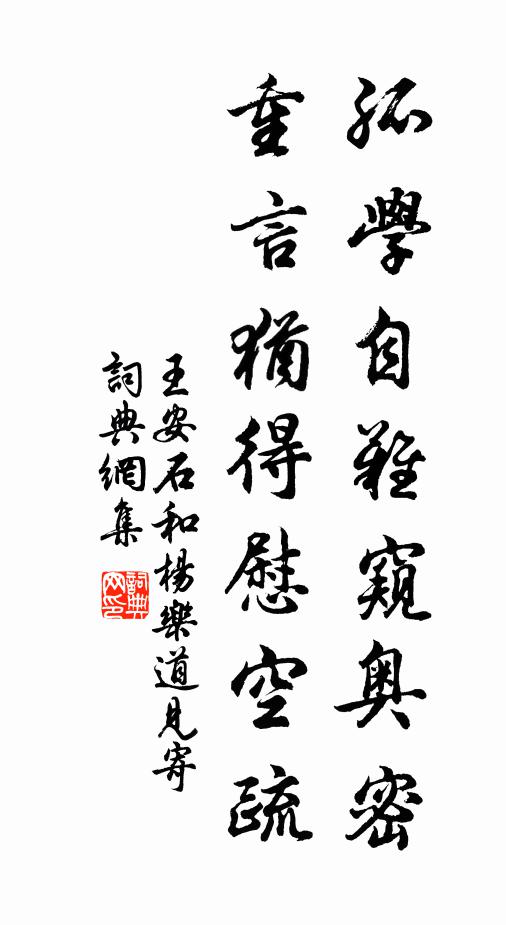 孤學自難窺奧密
重言猶得慰空疏
王安石和楊樂道見寄
詞典網集
詞典网印